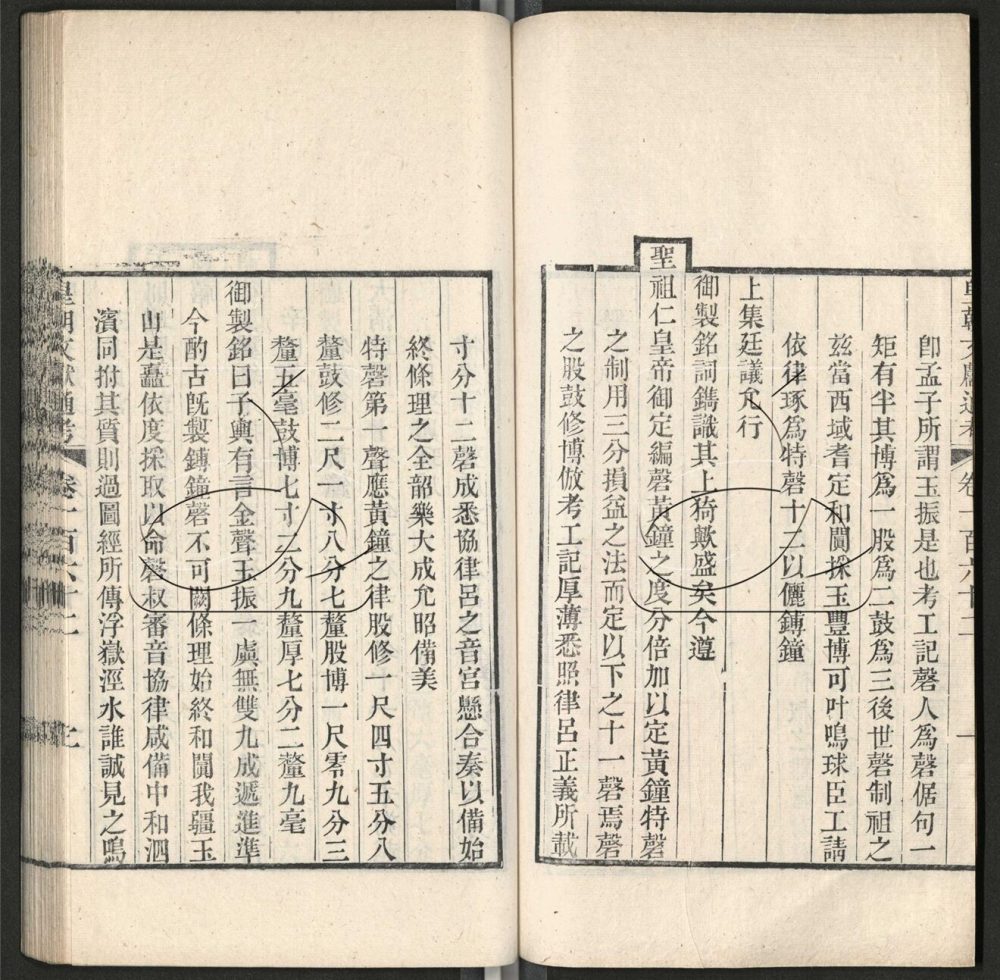 卽孟子所謂玉振是也考工記磬人爲磬倨句一
矩有半其博爲一股爲二鼓爲三後世磬制祖之
茲當西域耆定和闐採玉豐博可叶鳴球臣工請
依律琢爲特磬十二以儷鎛鐘
上集廷議允行
御製銘詞鐫識其上猗歟盛矣今遵
聖祖仁皇帝御定編磬黃鐘之度分倍加以定黃鐘特磬
之制用三分損益之法而定以下之十一磬焉磬
之股鼓修博倣考工記厚薄悉照律呂正義所載
寸分十二磬成悉協律呂之音宮懸合奏以備始
終條理之全韶樂大成允昭備美
特磬第一聲應黃鐘之律股修一尺四寸五分八
釐鼓修二尺一寸八分七釐股博一尺零九分三
釐五毫鼓博七寸二分九釐厚七分二釐九毫
御製銘曰子輿有言金聲玉振一虡無雙九成遞進準
今酌古旣製鎛鐘磬不可闕條理始終和闐我疆玉
山是矗依度採取以命磬叔審音協律咸備中和泗
濱同拊其質則過圖經所傳浮嶽涇水誰誠見之鳴
皇朝文獻通考 卷一百六十二